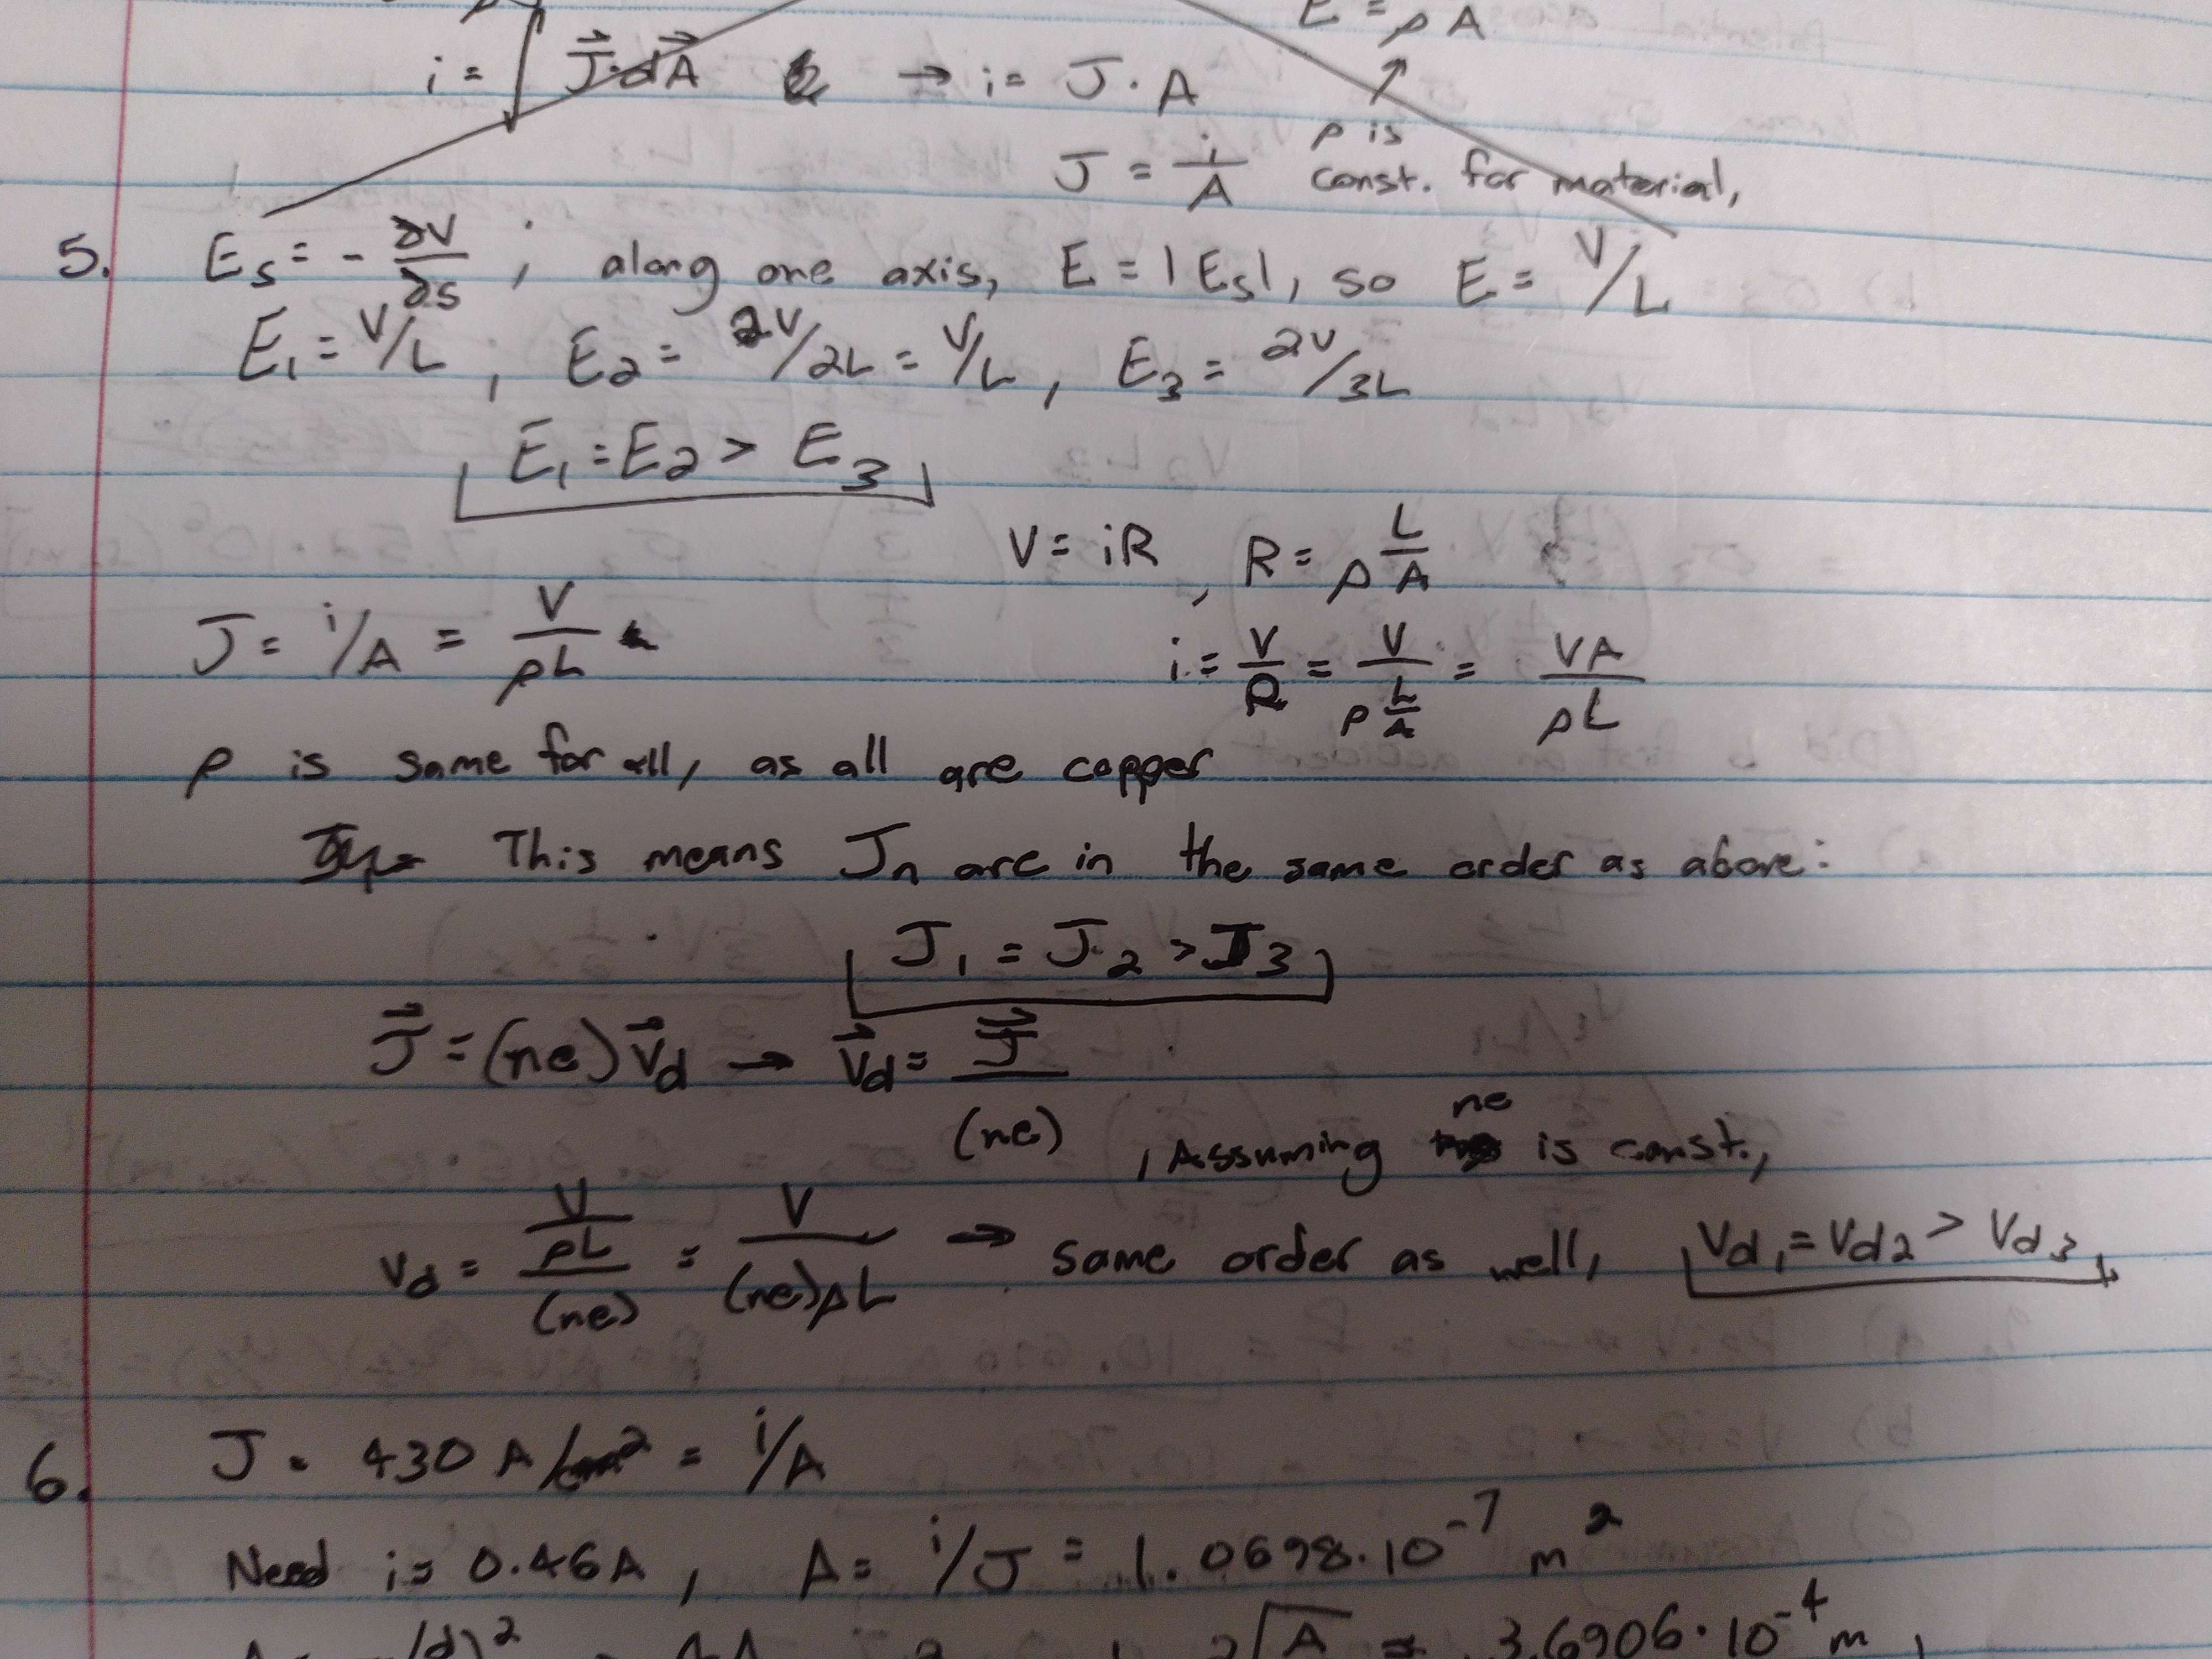 E = ρA
i = ∫ J⃗·dA⃗ → i = J · A
↑
ρ is
J = i/A const. for material,
5. E_s = - ∂V/∂s ; along one axis, E = |E_s|, so E = V/L
E₁ = V/L , E₂ = 2V/2L = V/L , E₃ = 2V/3L
E₁ = E₂ > E₃
V = iR , R = ρ L/A
J = i/A = V/ρL
i = V/R = V/(ρ L/A) = VA/ρL
ρ is same for all, as all are copper
This means Jₙ are in the same order as above:
J₁ = J₂ > J₃
J⃗ = (ne)v⃗_d → v⃗_d = J⃗/(ne) , Assuming ne is const.,
v_d = (V/ρL)/(ne) = V/((ne)ρL) → same order as well, V_d₁ = V_d₂ > V_d₃
6. J = 430 A/cm² = i/A
Need i = 0.46A , A = i/J = 1.0698·10⁻⁷ m²
(d)² 2√A = 3.6906·10⁻⁴ m ,